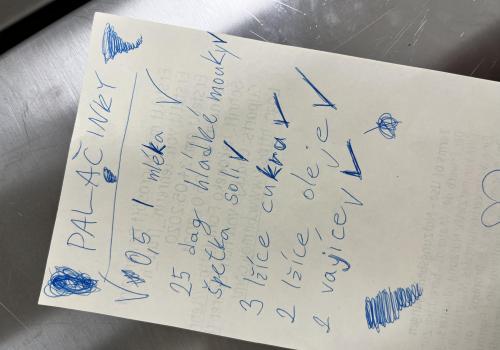 PALAČINKY
V 0,5 l mléka V
25 dag hladké mouky V
špetka soli V
3 lžíce cukra V
2 lžíce oleje V
2 vajíce V